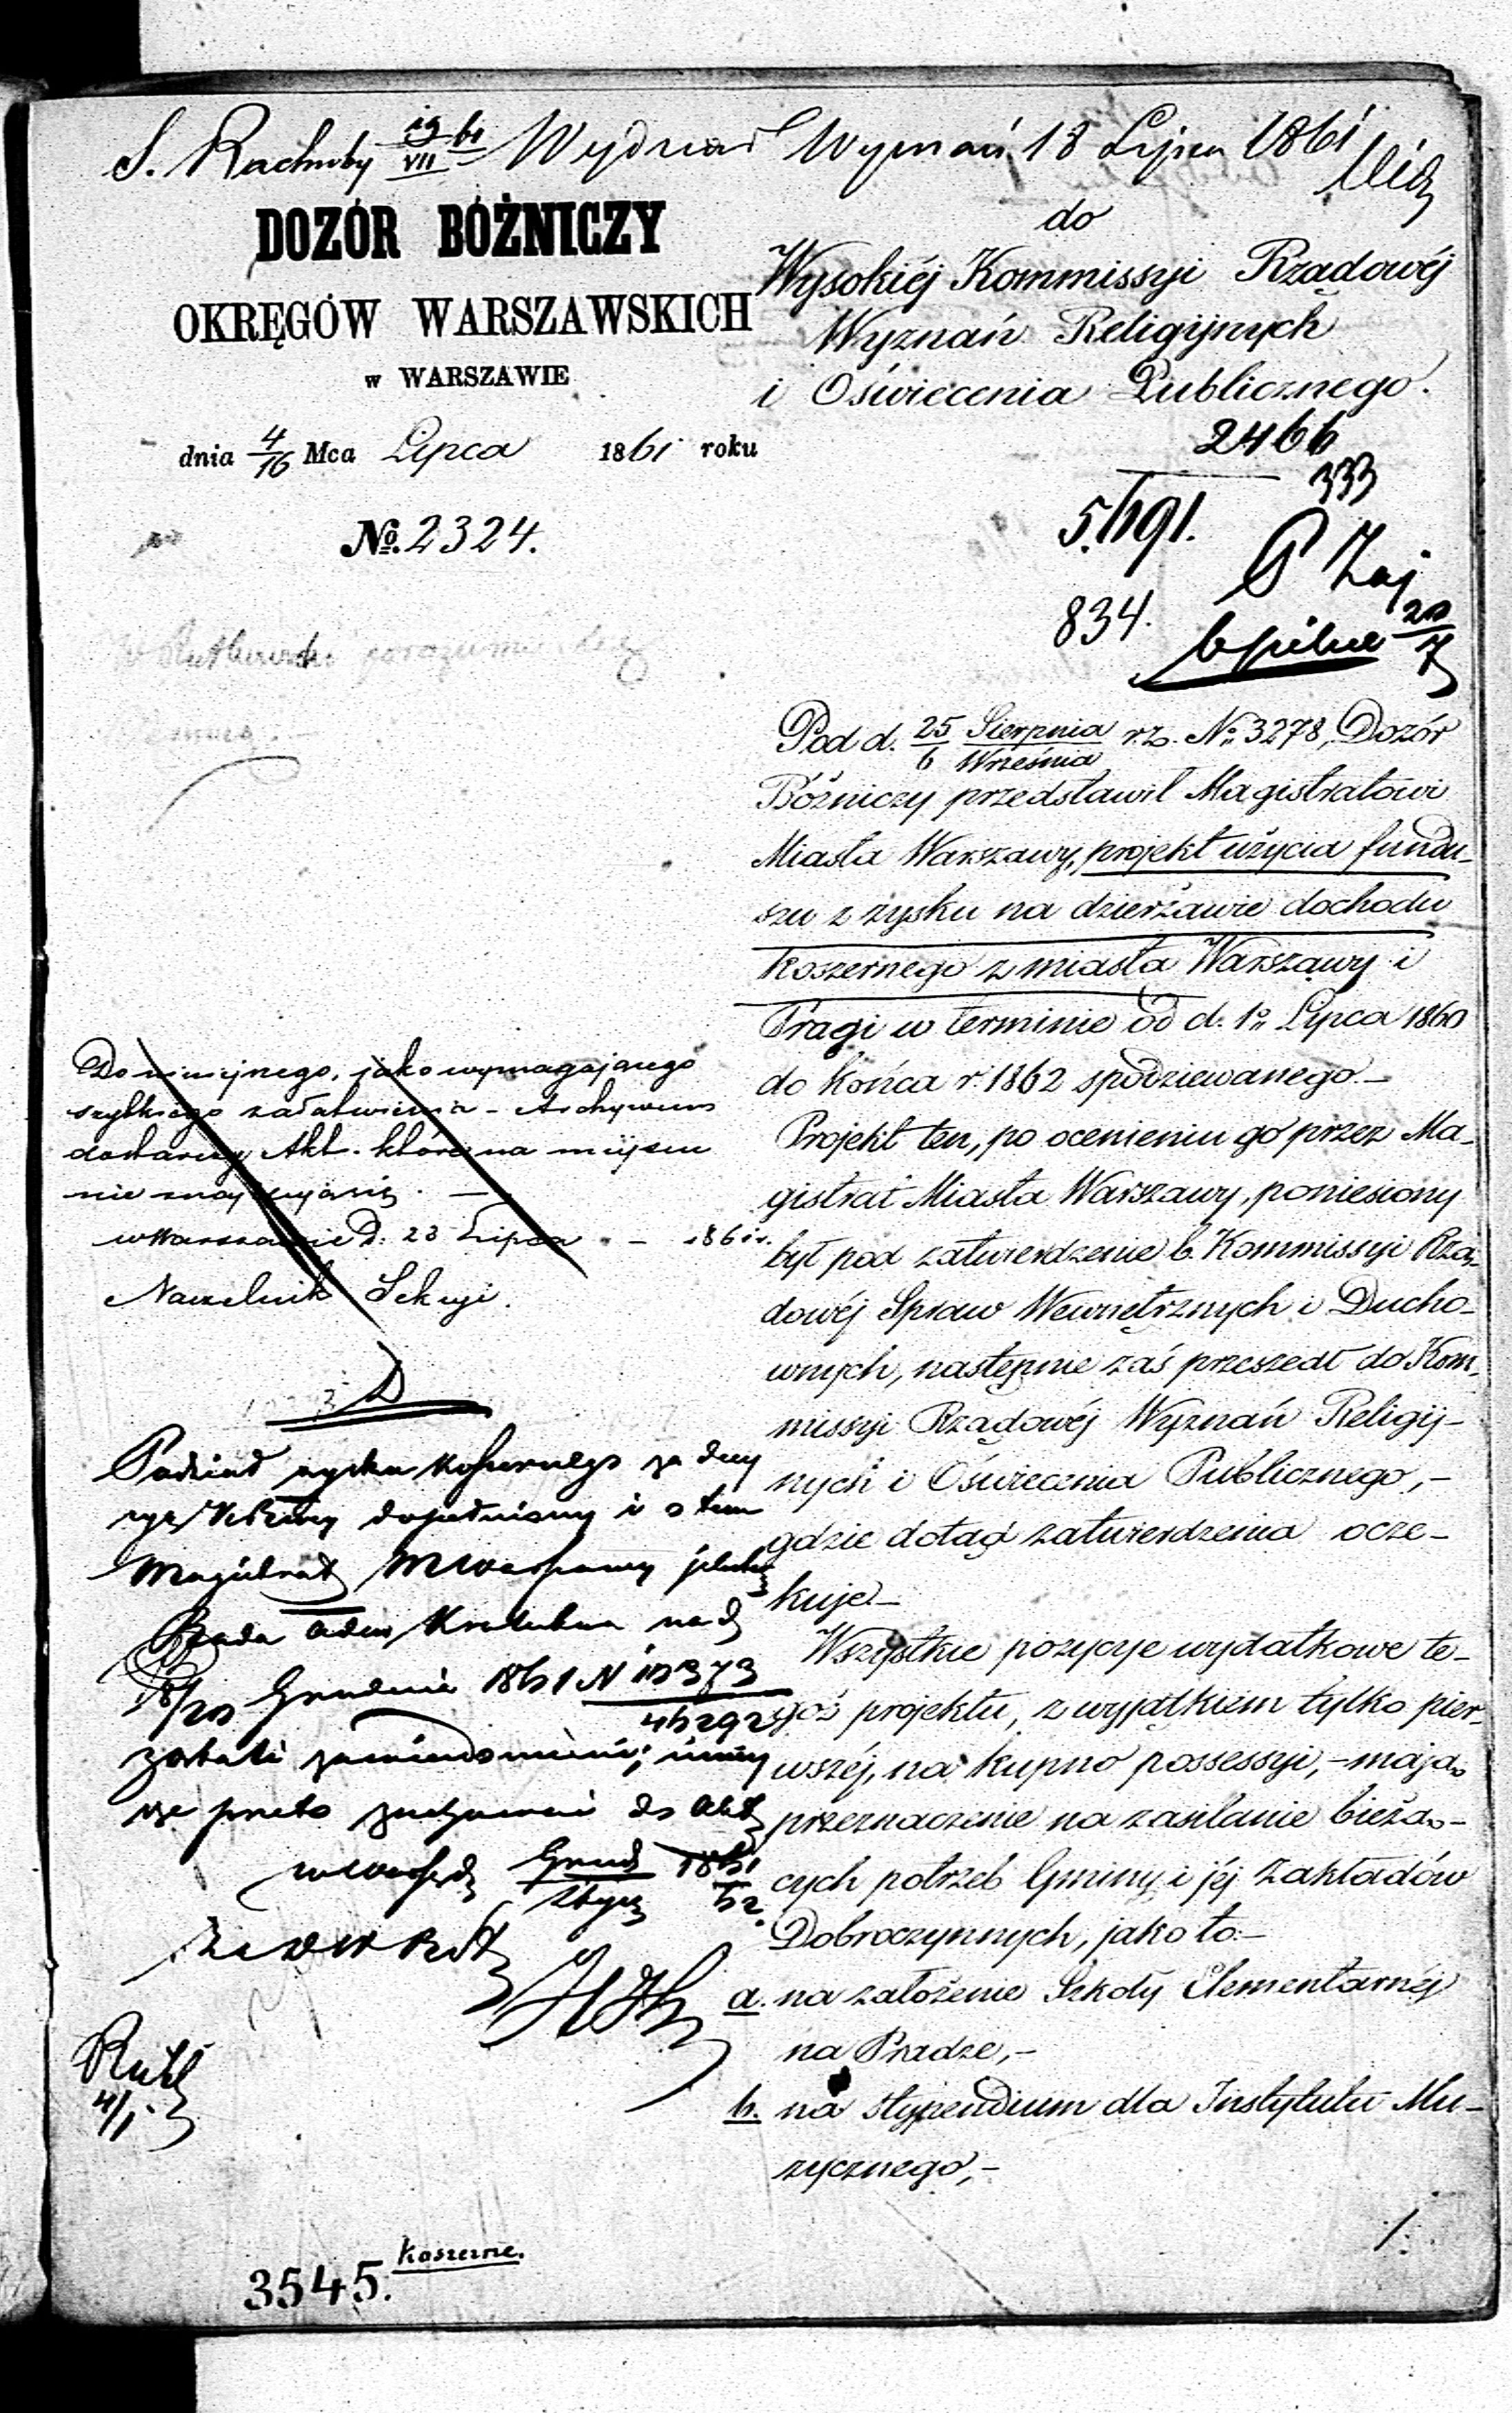 S. Rachuby 19/VII 61 Wydział Wyznań 18 Lipca 1861
DOZÓR BÓŻNICZY
OKRĘGÓW WARSZAWSKICH
w WARSZAWIE
dnia 4/16 Mca Lipca 1861 roku
No. 2324.
do
Wysokiéj Kommissyi Rządowéj
Wyznań Religijnych
i Oświecenia Publicznego.
2466
333
834.
20/7
Pod d. 25 Sierpnia / 6 Września r.z. No 3278, Dozór
Bóżniczy przedstawił Magistratowi
Miasta Warszawy, projekt użycia fundu-
szu z zysku na dzierżawie dochodu
koszernego z miasta Warszawy i
Pragi w terminie od d. 1o Lipca 1860
do końca r. 1862 spodziewanego.-
Projekt ten, po ocenieniu go przez Ma-
gistrat Miasta Warszawy, poniesiony
był pod zatwierdzenie b. Kommissyi Rzą-
dowéj Spraw Wewnętrznych i Ducho-
wnych, następnie zaś przeszedł do Kom-
missyi Rządowéj Wyznań Religij-
nych i Oświecenia Publicznego,-
gdzie dotąd zatwierdzenia ocze-
kuje.-
Wszystkie pozycye wydatkowe te-
goż projektu, z wyjątkiem tylko pier-
wszéj, na kupno possessyi,- mają
przeznaczenie na zasilanie bieżą-
cych potrzeb Gminy i jéj Zakładów
Dobroczynnych, jako to:-
a. na założenie Szkoły Elementarnéj
na Pradze,-
b. na stypendium dla Instytutu Mu-
zycznego,-
Do niniejszego, jako wymagającego
szybkiego załatwienia - Archiwum
dostarczy Akt. które na miejscu
nie znajdują się. -
w Warszawie D. 23 Lipca - 1861 r.
Naczelnik Sekcyi.
Podział zysku koszernego
dopełniony i o tem
Magistrat
Rada
18/20 Grudnia 1861 N
46292
zostali zawiadomieni;
przeto do Akt
Grud 1861
Stycz 62
Rutk
4/1
koszerne.
3545.
1.